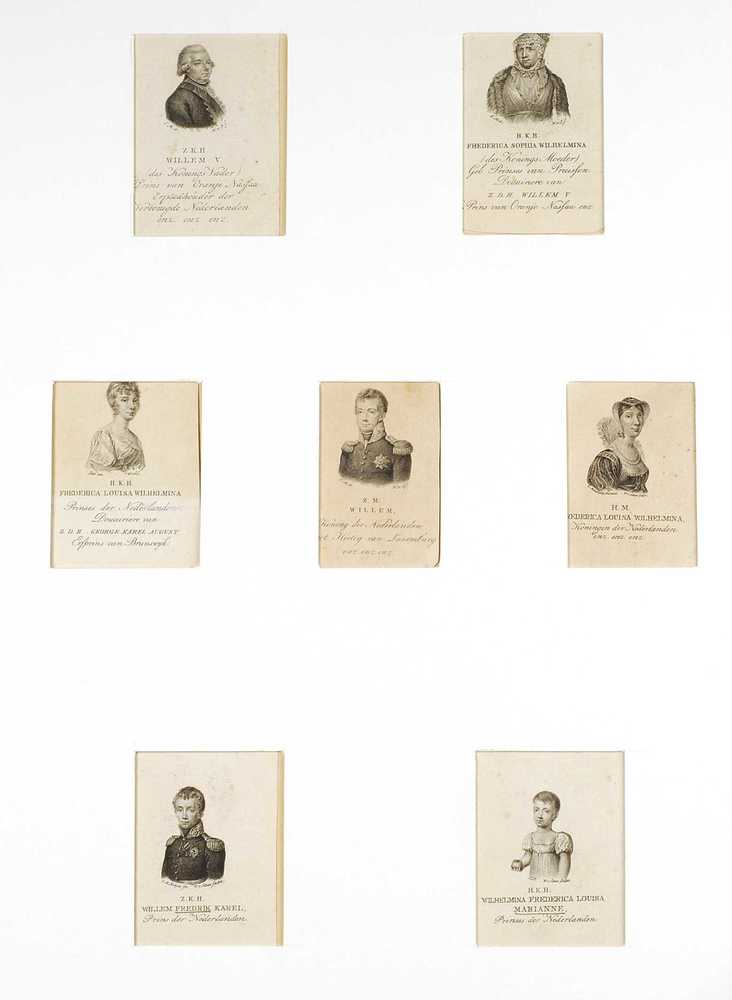 Z.K.H.
WILLEM V
(des Konings Vader)
Prins van Oranje Nassau
Erfstadhouder der
Vereenigde Nederlanden
enz. enz. enz.
H.K.H.
FREDERICA SOPHIA WILHELMINA
(des Konings Moeder)
Geb. Prinses van Pruissen
Douairiere van
Z.D.H. WILLEM V
Prins van Oranje Nassau enz.
H.K.H.
FREDERICA LOUISA WILHELMINA
Prinses der Nederlanden
Douairiere van
Z.D.H. GEORGE KAREL AUGUST
Erfprins van Brunswyk.
Z.M.
WILLEM,
Koning der Nederlanden
Hertog van Luxemburg
enz. enz. enz.
H.M.
FREDERICA LOUISA WILHELMINA,
Koningin der Nederlanden
enz. enz. enz.
Z.K.H.
WILLEM FREDRIK KAREL,
Prins der Nederlanden.
H.K.H.
WILHELMINA FREDERICA LOUISA
MARIANNE,
Prinses der Nederlanden.